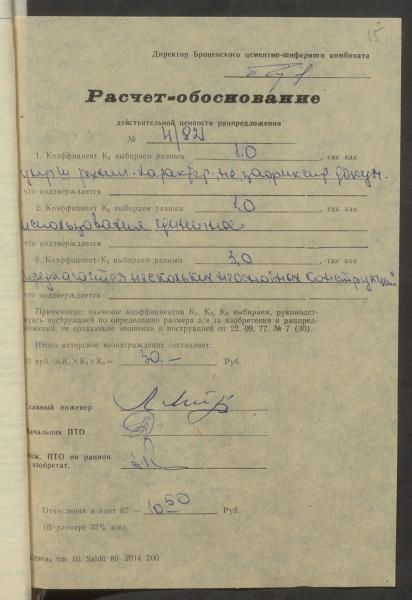 15
Директор Броценского цементно-шиферного комбината
Расчет-обоснование
действительной ценности рацпредложения
№ 4/82
1. Коэффициент К₁ выбираем равным 1.0, так как
характер. не зафиксир. докум.
что подтверждается
2. Коэффициент К₂ выбираем равным 1.0, так как
использования единичное
что подтверждается
3. Коэффициент К₃ выбираем равным 3,0, так как
несколько несложных конструкций
что подтверждается
Примечание: значение коэффициентов К₁, К₂, К₃ выбираем, руководст-
вуясь инструкцией по определению размера а/в за изобретения и рацпред-
ложения, не создающие экономии и инструкцией от 22. 09. 77. № 7 (30).
Итого авторское вознаграждение составляет:
10 руб. ×К₁×К₂×К₃= 30.— Руб.
Главный инженер
Начальник ПТО
Инж. ПТО по рацион.
и изобретат.
Отчисления в фонт 87 — 10 50 Руб.
(В размере 35% а/в)
tip. fil. Saldū 85 2014 200